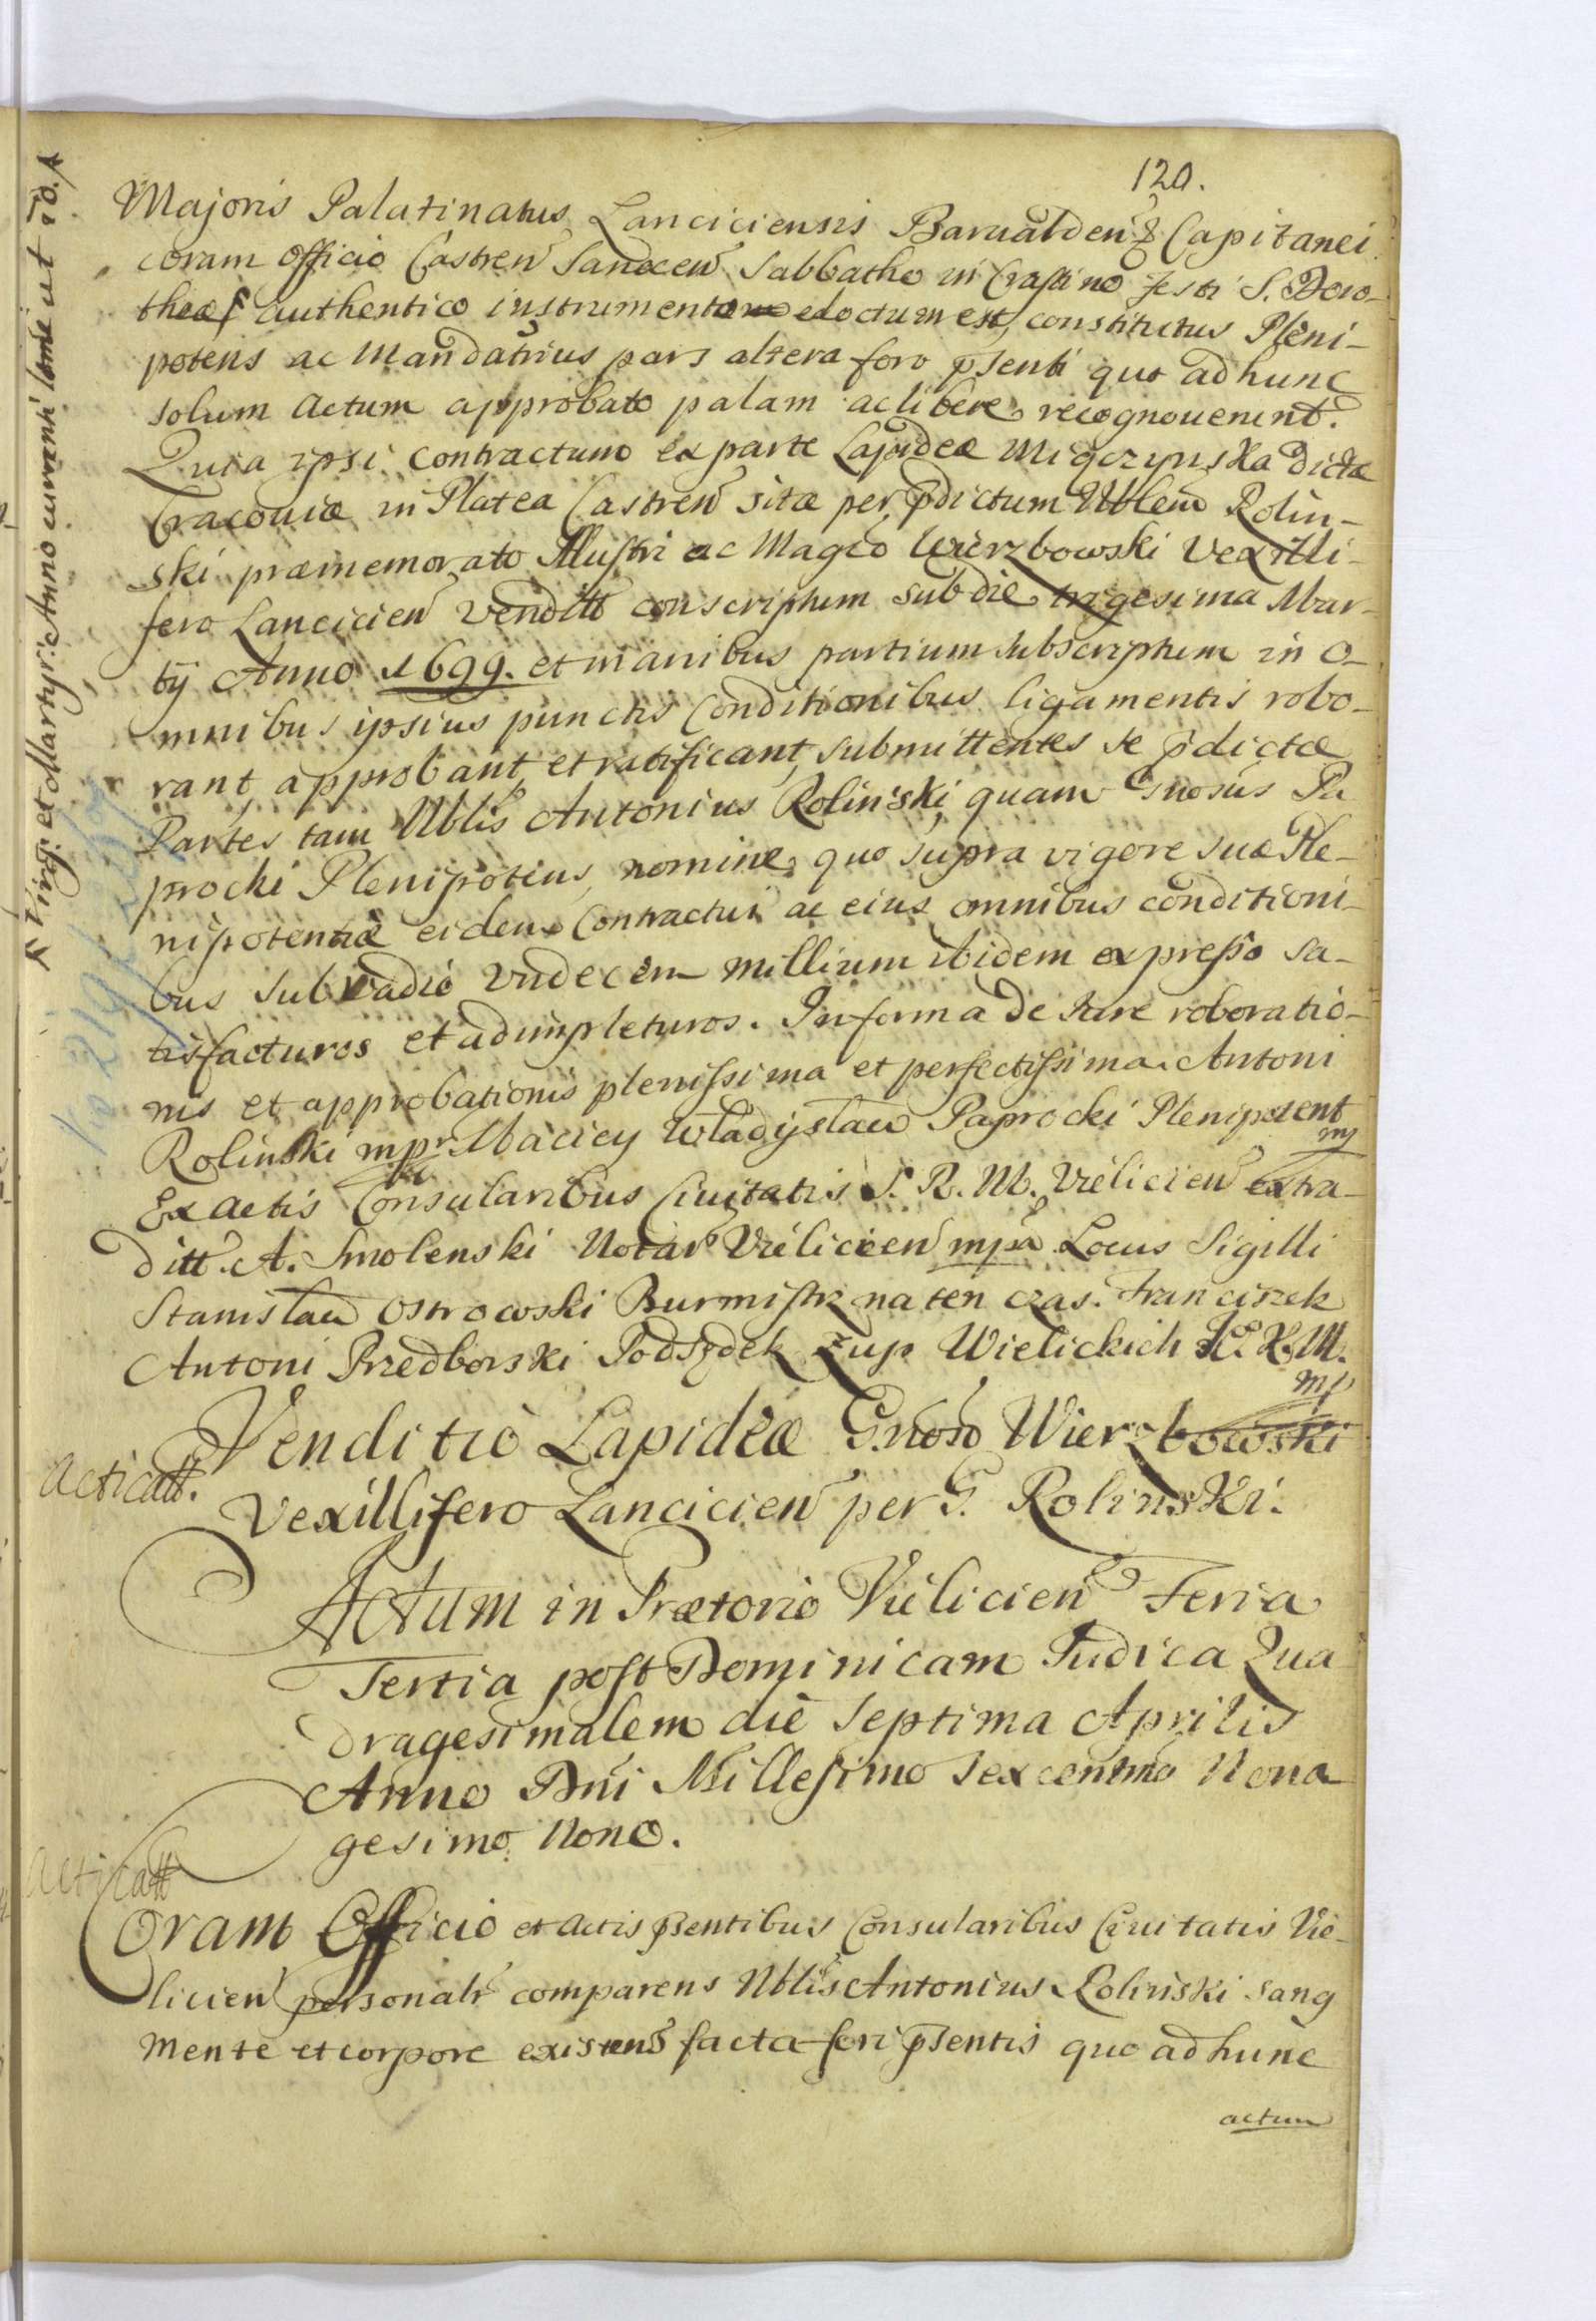 120.
Majoris Palatinatus Lanciciensis Barualdenꝫ & Capitanei
coram officio Castren̄ Sandecen̄ Sabbatho in Crastino Festi S. Doro-
theæ authentico instrumento edoctum est, constitutus Pleni-
potens ac Mandatrius pars altera foro p̄senti quo ad hunc
solum actum approbato palam ac libere recognouerunt.
Quia ipsi contractum ex parte Lapideæ Migczynska dictæ
Cracouiæ in Platea Castren̄ sitæ per p̄dictum Nblem Rolin-
ski præmemorato Illustri ac Magco Wierzbowski Vexilli-
fero Lancicien̄ vendit conscriptum sub die trigesima Mar-
tij Anno 1699. et manibus partium subscriptum in o-
mnibus ipsius punctis conditionibus ligamentis robo-
rant, approbant, et ratificant, submittentes se p̄dictæ
Partes tam Nblis Antonius Rolinski, quam Gnosus Pa
procki Plenipotens, nomine, quo supra vigore suæ Ple-
nipotentiæ eidem Contractui ac eius omnibus conditioni-
bus sub vadio Undecem millium ibidem expresso sa-
tisfacturos et adimpleturos. In forma de iure roboratio-
nis et approbationis plenissima et perfectissima. Antoni
Rolinski mpr Maciey Władysław Paprocki Plenipotent
mp
Ex actis Consularibus Ciuitatis S. R. M. Vielicien̄ extra-
ditt. A. Smolenski Notar Vielicien̄ mpa Locus Sigilli
Stanisław Ostrowski Burmistrz na ten czas. Franciszek
Antoni Przedborski Podsędek Zup Wielickich J. K. M.
mp
Acticatt.
Venditio Lapideæ Gnoso Wierzbowski
Vexillifero Lancicien̄ per G. Rolinski.
Actum in Prætorio Vielicien̄ Feria
Tertia post Dominicam Judica Qua
dragesimalem die Septima Aprilis
Anno Dn̄i Millesimo sexcentmo Nona
gesimo Nono.
Acticatt
Coram Officio et actis p̄sentibus Consularibus Ciuitatis Vie-
licien̄ personalr comparens Nblis Antonius Rolinski sang
mente et corpore existens facta fori p̄sentis quo ad hunc
actum
Virg: et Martyr: Anno currenti